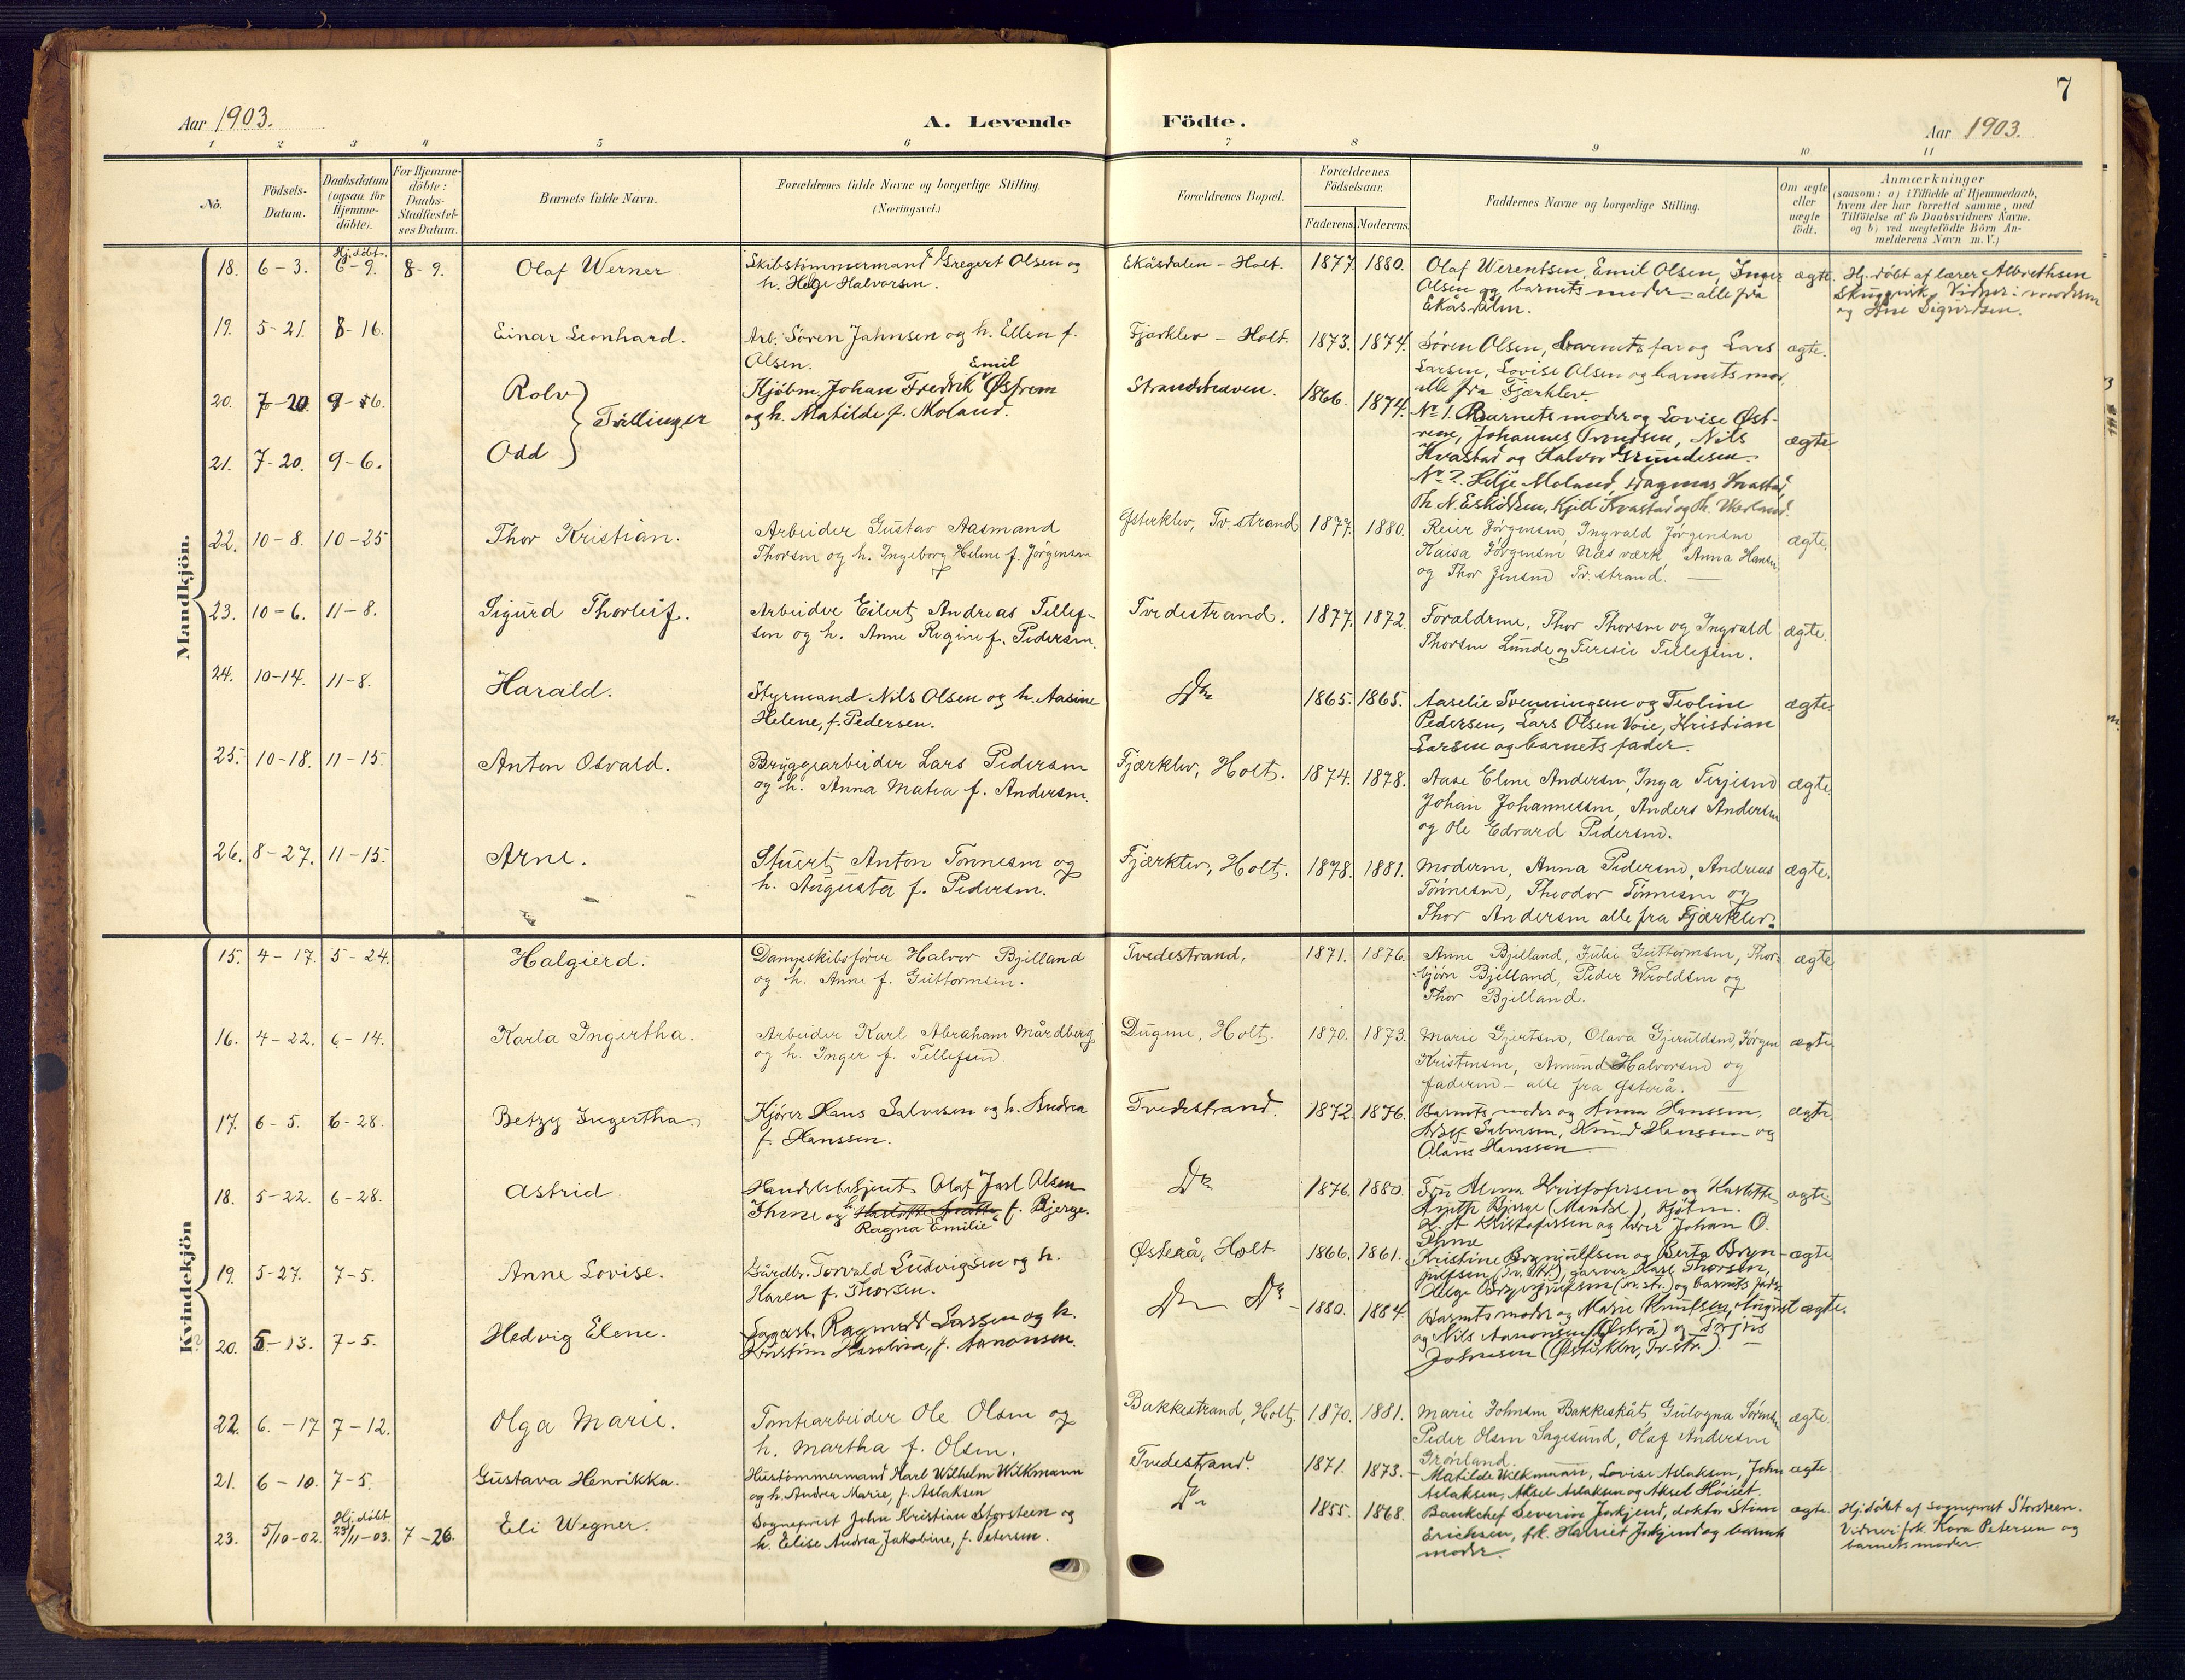 7
Aar 1903.
A. Levende Födte.
Aar 1903.
1 2 3 4 5 6 7 8 9 10 11
No.
Födsels-Datum.
Daabsdatum (ogsaa for Hjemme-döbte).
For Hjemme-döbte: Daabs-Stadfæstel-ses Datum.
Barnets fulde Navn.
Forældrenes fulde Navne og borgerlige Stilling.
(Næringsvei.)
Forældrenes Bopæl.
Forældrenes Födselsaar.
Faderens. Moderens.
Faddernes Navne og borgerlige Stilling.
Om ægte eller uægte födt.
Anmærkninger
(saasom: a) i Tilfælde af Hjemmedaab, hvem der har forrettet samme, med Tilföielse af to Daabsvidners Navne, og b) ved uægtefödte Börn An-melderens Navn m. V.)
Mandkjön.
18. 6-3. Hj.döbt. 6-9. 8-9. Olaf Werner
Skibstømmermand Gregert Olsen og
h. Helge Halvorsen.
Ekåsdalen - Holt. 1877. 1880.
Olaf Werentsen, Emil Olsen, Inger
Olsen og barnets moder - alle fra
Ekåsdalen.
ægte.
Hj. döbt af lærer Albrethsen
Skuggevik. Vidner: moderen
og Ane Sigurdsen.
19. 5-21. 8-16. Einar Leonhard.
Arb. Søren Jahnsen og h. Ellen f.
Olsen.
Fjærklev - Holt. 1873. 1874.
Søren Olsen, barnets far og Lars
Larsen, Lovise Olsen og barnets mor,
alle fra Fjærklev.
ægte.
20. 7-20. 9-6. Rolv
Tvillinger
21. 7-20. 9-6. Odd
Emil
Kjøbm. Johan Fredrik Østrem
og h. Matilde f. Moland.
Strandstuven. 1866. 1874.
No 1. Barnets moder og Lovise Øst-
rem, Johannes Trondsen, Nils
Kvastad og Halvor Grundesen.
No 2. Helje Moland, Dagmar Kvastad,
Th. N. Eskildsen, Kjell Kvastad og Th. Vkerland.
ægte
22. 10-8. 10-25 Thor Kristian.
Arbeider Gustav Aasmand
Thorsen og h. Ingeborg Helene f. Jørgensen
Østerklev, Tv.strand 1877. 1880.
Reier Jørgensen, Ingvald Jørgensen
Kaisa Jørgensen Næs værk, Anna Hansen
og Thor Jensen Tv.strand.
ægte.
23. 10-6. 11-8. Sigurd Thorleif.
Arbeider Eilert Andreas Tellef-
sen og h. Anne Regine f. Pedersen.
Tvedestrand. 1877. 1872.
Forældrene, Thor Thorsen og Ingvald
Thorsen Lunde og Teresie Tellefsen.
ægte.
24. 10-14. 11-8. Harald.
Styrmand Nils Olsen og h. Aasine
Helene, f. Pedersen.
Do 1865. 1865.
Aaselie Svenningsen og Teoline
Pedersen, Lars Olsen Voie, Kristian
Larsen og barnets fader.
ægte.
25. 10-18. 11-15. Anton Osvald.
Bryggearbeider Lars Pedersen
og h. Anna Matea f. Andersen.
Fjærklev, Holt. 1874. 1878.
Aase Eline Andersen, Inga Terjesen
Johan Johannessen, Anders Andersen
og Ole Edvard Pedersen.
ægte.
26. 8-27. 11-15. Arne.
Stuert Anton Tønnesen og
h. Augusta f. Pedersen.
Fjærklev, Holt. 1878. 1881.
Moderen, Anna Pedersen, Andreas
Tønnesen, Theodor Tønnesen og
Thor Andersen alle fra Fjærklev.
ægte.
Kvindekjön
15. 4-17. 5-24. Halgierd.
Dampskibsfører Halvor Bjelland
og h. Anne f. Guttormsen.
Tvedestrand. 1871. 1876.
Anne Bjelland, Julie Guttormsen, Thor-
bjørn Bjelland, Peder Wroldsen og
Thor Bjelland.
ægte
16. 4-22. 6-14. Karla Ingertha.
Arbeider Karl Abraham Mårdberg
og h. Inger f. Tellefsen.
Dugene, Holt. 1870. 1873.
Marie Gjertsen, Olava Gjeruldsen, Jørgen
Kristensen, Amund Halvorsen og
faderen - alle fra Østerå.
ægte.
17. 6-5. 6-28. Betzy Ingertha.
Kjører Hans Salvesen og h. Andrea
f. Hanssen.
Tvedestrand. 1872 1876.
Barnets moder og Anna Hanssen,
Salvesen, Knud Hanssen og
Olaus Hanssen
ægte.
18. 5-22. 6-28. Astrid.
Handelsbetjent Olaf Jarl Olsen
Thene og h. f. Bjerge.
Ragna Emilie
Do 1876. 1880.
Fru Alma Kristofersen og Karlotte
Bjerge (Mandal), Kjøbm.
Kristofersen og Johan O.
Thene
ægte.
19. 5-27. 7-5. Anne Lovise.
Gårdbr. Torvald Ludvigsen og h.
Karen f. Thorsen.
Østerå, Holt 1866. 1861.
Kristine Brynjulfsen og Berta Bryn-
julfsen (Tv.str.), garver Karl Thorsen,
Helge Brynjulfsen (Tv.str.) og barnets fader.
ægte.
20. 5-13. 7-5. Hedvig Elene.
Sagarb. Ragnvald Larsen og h.
Kristine Karoline, f. Aanonsen.
Do Do 1880. 1884.
Barnets moder og Marie Knutsen, August
og Nils Aanonsen (Østerå) og Terjus
Johnsen (Østerklev, Tv.str.).
ægte.
22. 6.-17 7-12. Olga Marie.
Tomtearbeider Ole Olsen og
h. Martha f. Olsen.
Bakkestrand, Holt. 1870. 1881.
Marie Johnsen Bakkeskåt, Gulogna Sørensen
Peder Olsen Sagesund, Olaf Andersen
Grønland.
ægte.
21. 6-10. 7-5. Gustava Henrikka.
Hustømmermand Karl Wilhelm Wilkmann
og h. Andrea Marie, f. Aslaksen
Tvedestrand. 1871. 1873.
Matilde Wilkmann, Lovise Aslaksen, John
Aslaksen, Aksel Aslaksen og Aksel Høiset.
ægte
23. 5/10-02. Hj.døbt 23/11-03. 7-26. Eli Wegner.
Sogneprest John Kristian Storsteen og
h. Elise Andrea Jakobine, f. Petersen.
Do 1855. 1868.
Bankchef Severin Jorkjend, doktor Stian
Erichsen, frk. Harriet Jorkjend og barnets
moder.
ægte.
Hj.døbt af sogneprest Storsteen.
Vidner: frk. Kara Petersen og
barnets moder.